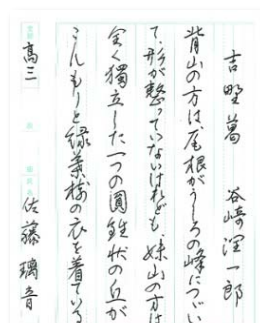 吉野葛　谷崎潤一郎
背山の方は、尾根がうしろの峰につづい
て、形が整っていないけれども、妹山の方は
全く獨立した一つの圓錐状の丘が
こんもりと緑葉樹の衣を着ている
髙三
佐藤璃音